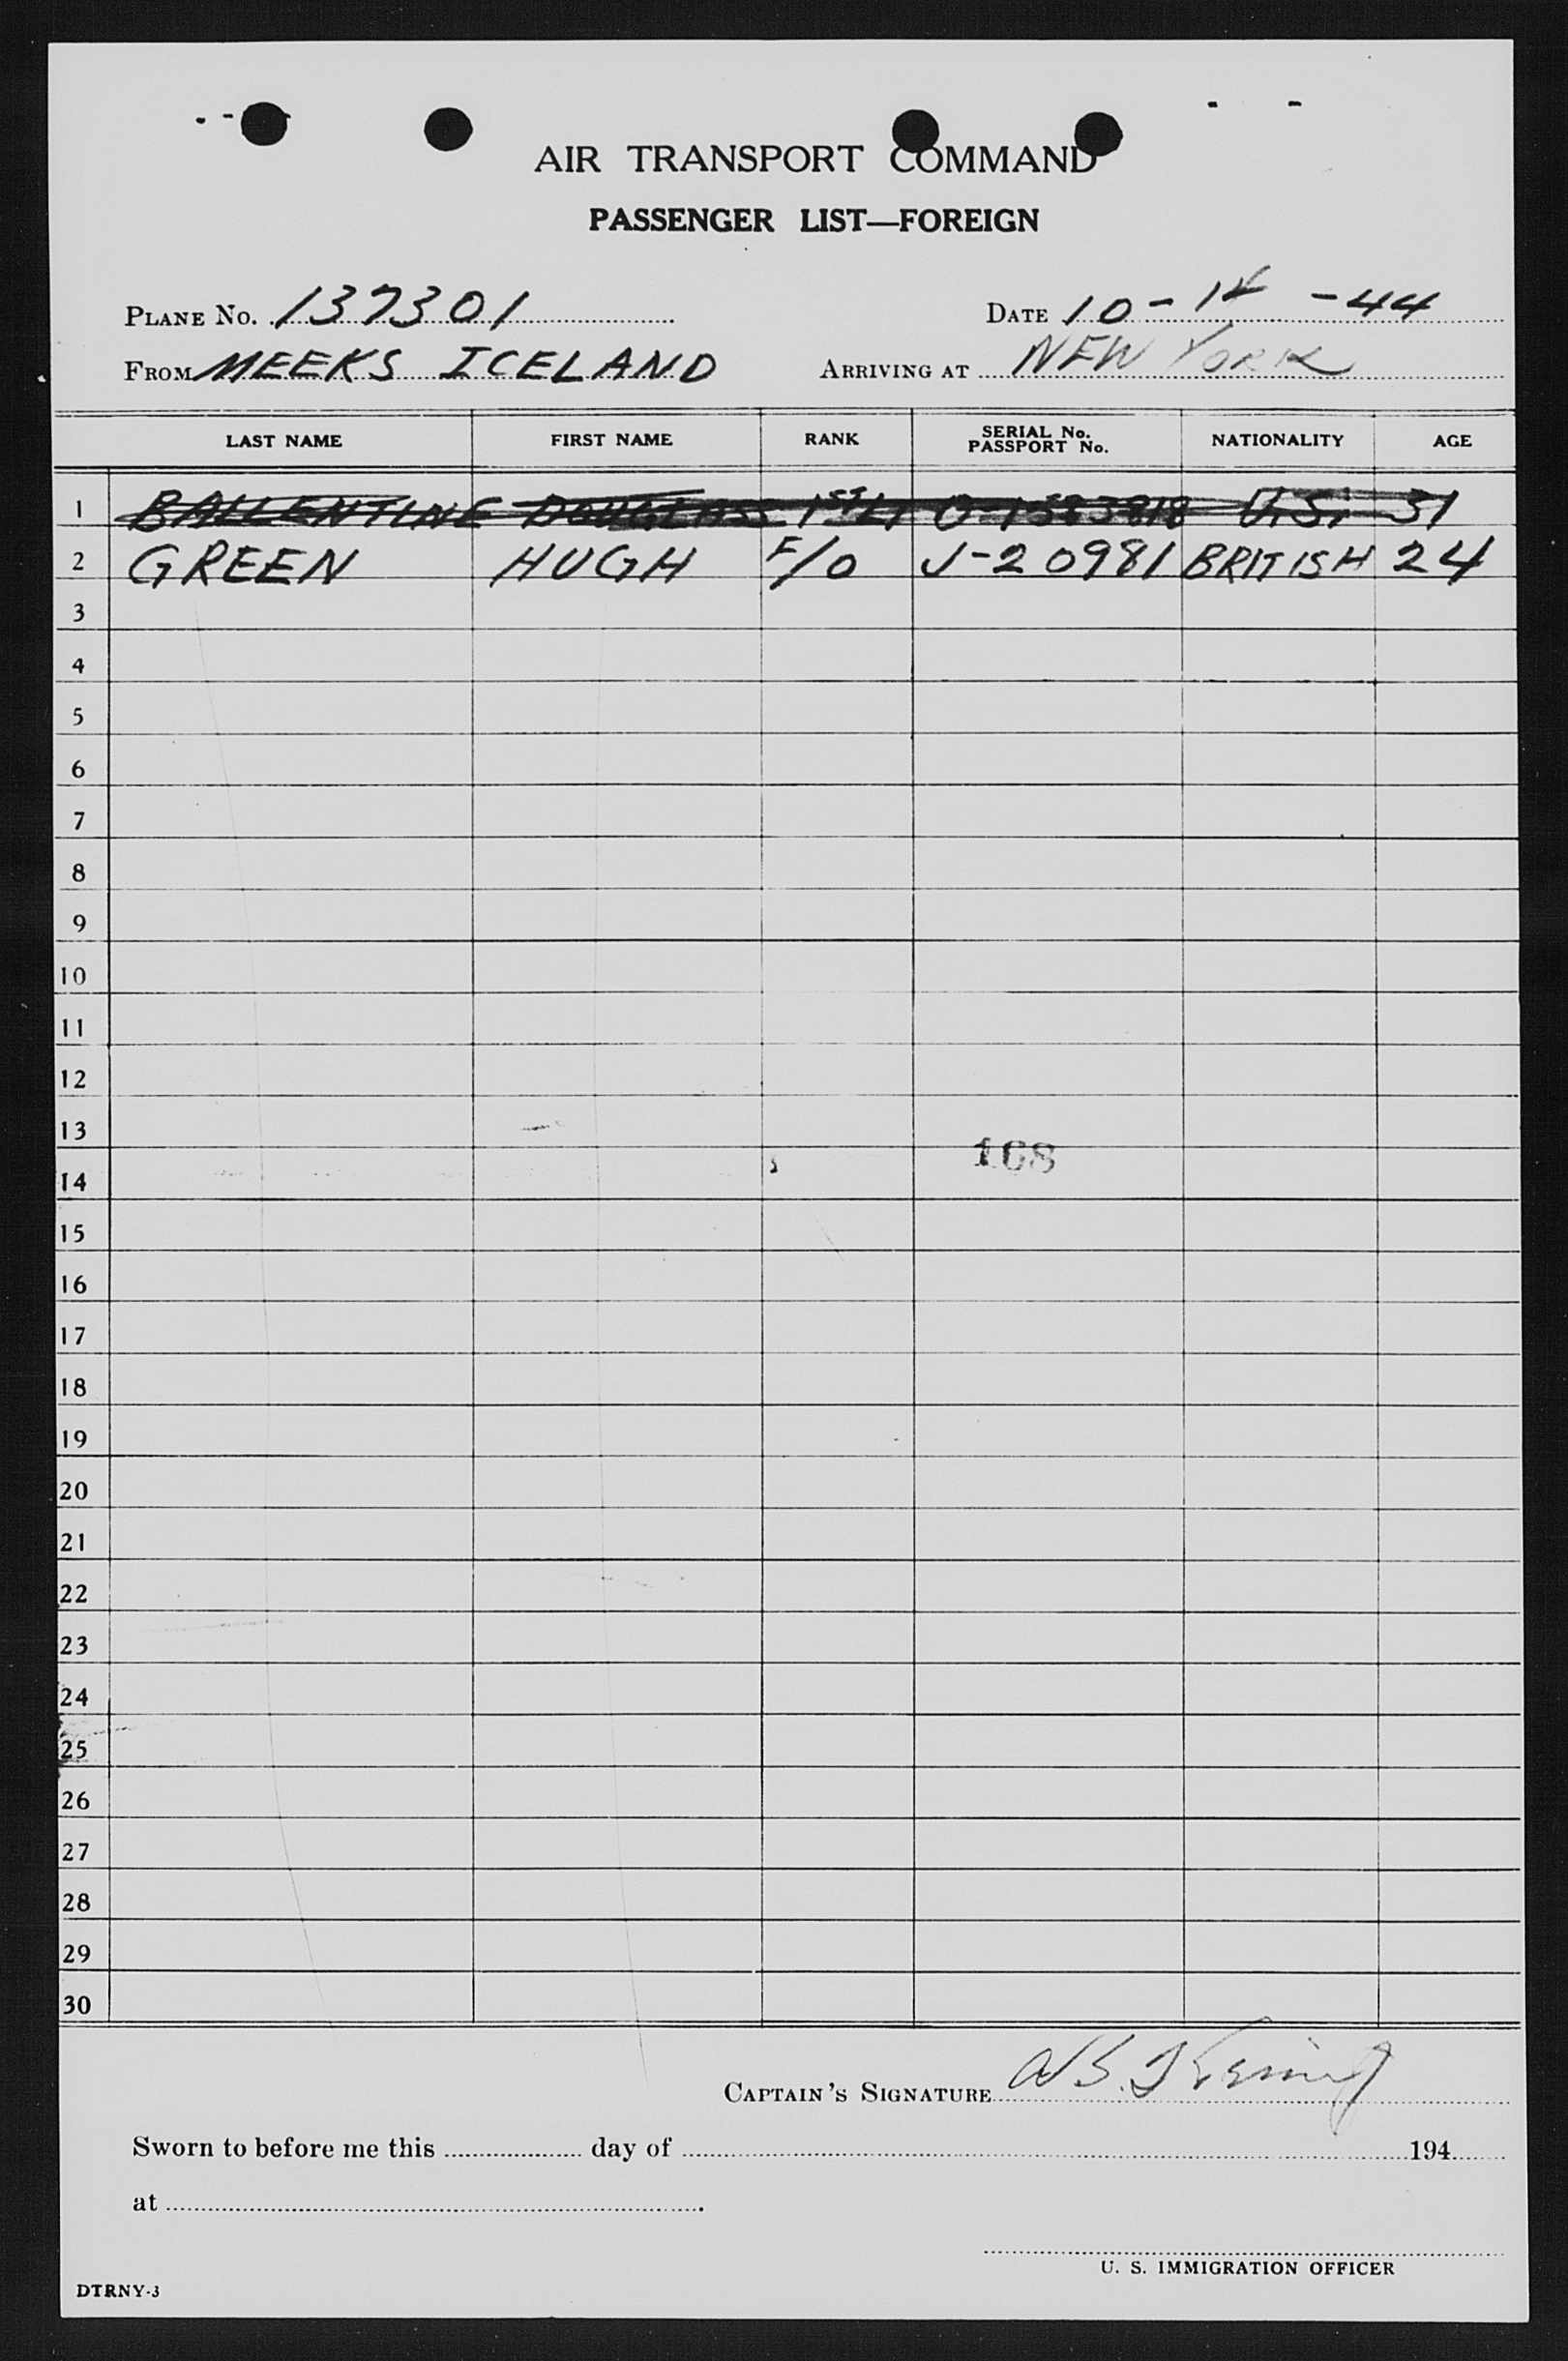 AIR TRANSPORT COMMAND
PASSENGER LIST—FOREIGN
PLANE No. 137301 DATE 10-14-44
FROM MEEKS ICELAND ARRIVING AT NEW YORK
LAST NAME FIRST NAME RANK SERIAL No. PASSPORT No. NATIONALITY AGE
1 BALLENTINE DOUGLASS 1ST LT O-1583818 U.S. 31
2 GREEN HUGH F/O J-20981 BRITISH 24
3
4
5
6
7
8
9
10
11
12
13
168
14
15
16
17
18
19
20
21
22
23
24
25
26
27
28
29
30
CAPTAIN'S SIGNATURE
Sworn to before me this day of 194
at .
U. S. IMMIGRATION OFFICER
DTRNY-3